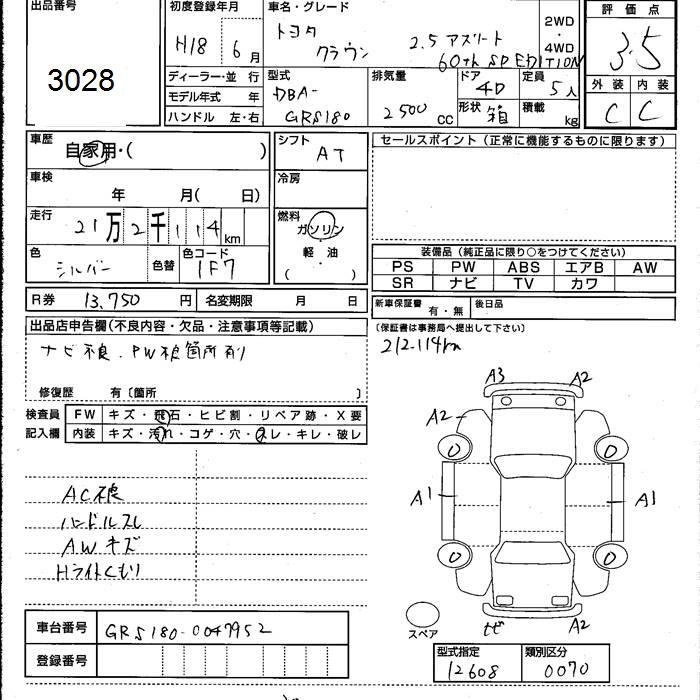 出品番号
3028
初度登録年月
H18 6月
車名・グレード
トヨタ
クラウン
2.5 アスリート
60th SP EDITION
2WD
・
4WD
評価点
3.5
外装 内装
C C
ディーラー・並 行
モデル年式 年
ハンドル 左・右
型式
DBA-
GRS180
排気量
2500cc
ドア
4D
形状 箱
定員
5人
積載
kg
車歴
自家用・( )
車検
年 月( 日)
走行
21万2千114km
色
シルバー
色替
色コード
1F7
シフト
AT
冷房
燃料
ガソリン
・
軽 油
( )
セールスポイント(正常に機能するものに限ります)
装備品(純正品に限り○をつけてください)
PS PW ABS エアB AW
SR ナビ TV カワ
R券 13,750円
名変期限 月 日
新車保証書 有・無
後日品
(保証書は事務局へ提出して下さい)
出品店申告欄(不良内容・欠品・注意事項等記載)
ナビ不良.PW不良箇所有り
212.114km
修復歴 有〔箇所 〕
検査員
記入欄
FW キズ・飛石・ヒビ割・リペア跡・X要
内装 キズ・汚れ・コゲ・穴・スレ・キレ・破レ
AC不良
ハンドルスレ
AWキズ
Hライトくもり
A3 A2
A2
0 0
A1 A1
0 0
A2
スペア
車台番号 GRS180-0047952
登録番号
型式指定 類別区分
12608 0070